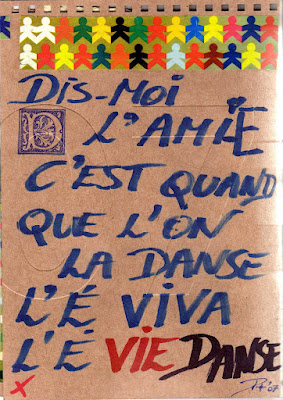 DIS-MOI
L'AMIE
C'EST QUAND
QUE L'ON
LA DANSE
L'É VIVA
L'É VIE DANSE
'07